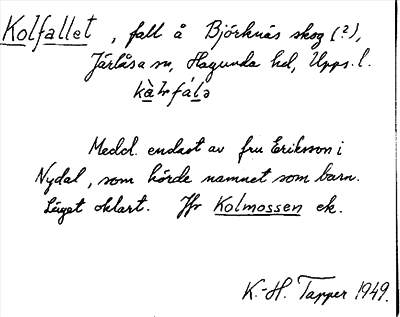 Kolfallet, fall å Björknäs skog (?),
Järlåsa sn, Hagunda hd, Upps. l.
kàɫfálə
Medd. endast av fru Eriksson i
Nydal, som hörde namnet som barn.
Läget oklart. Jfr Kolmossen ek.
K.-H. Tapper 1949.